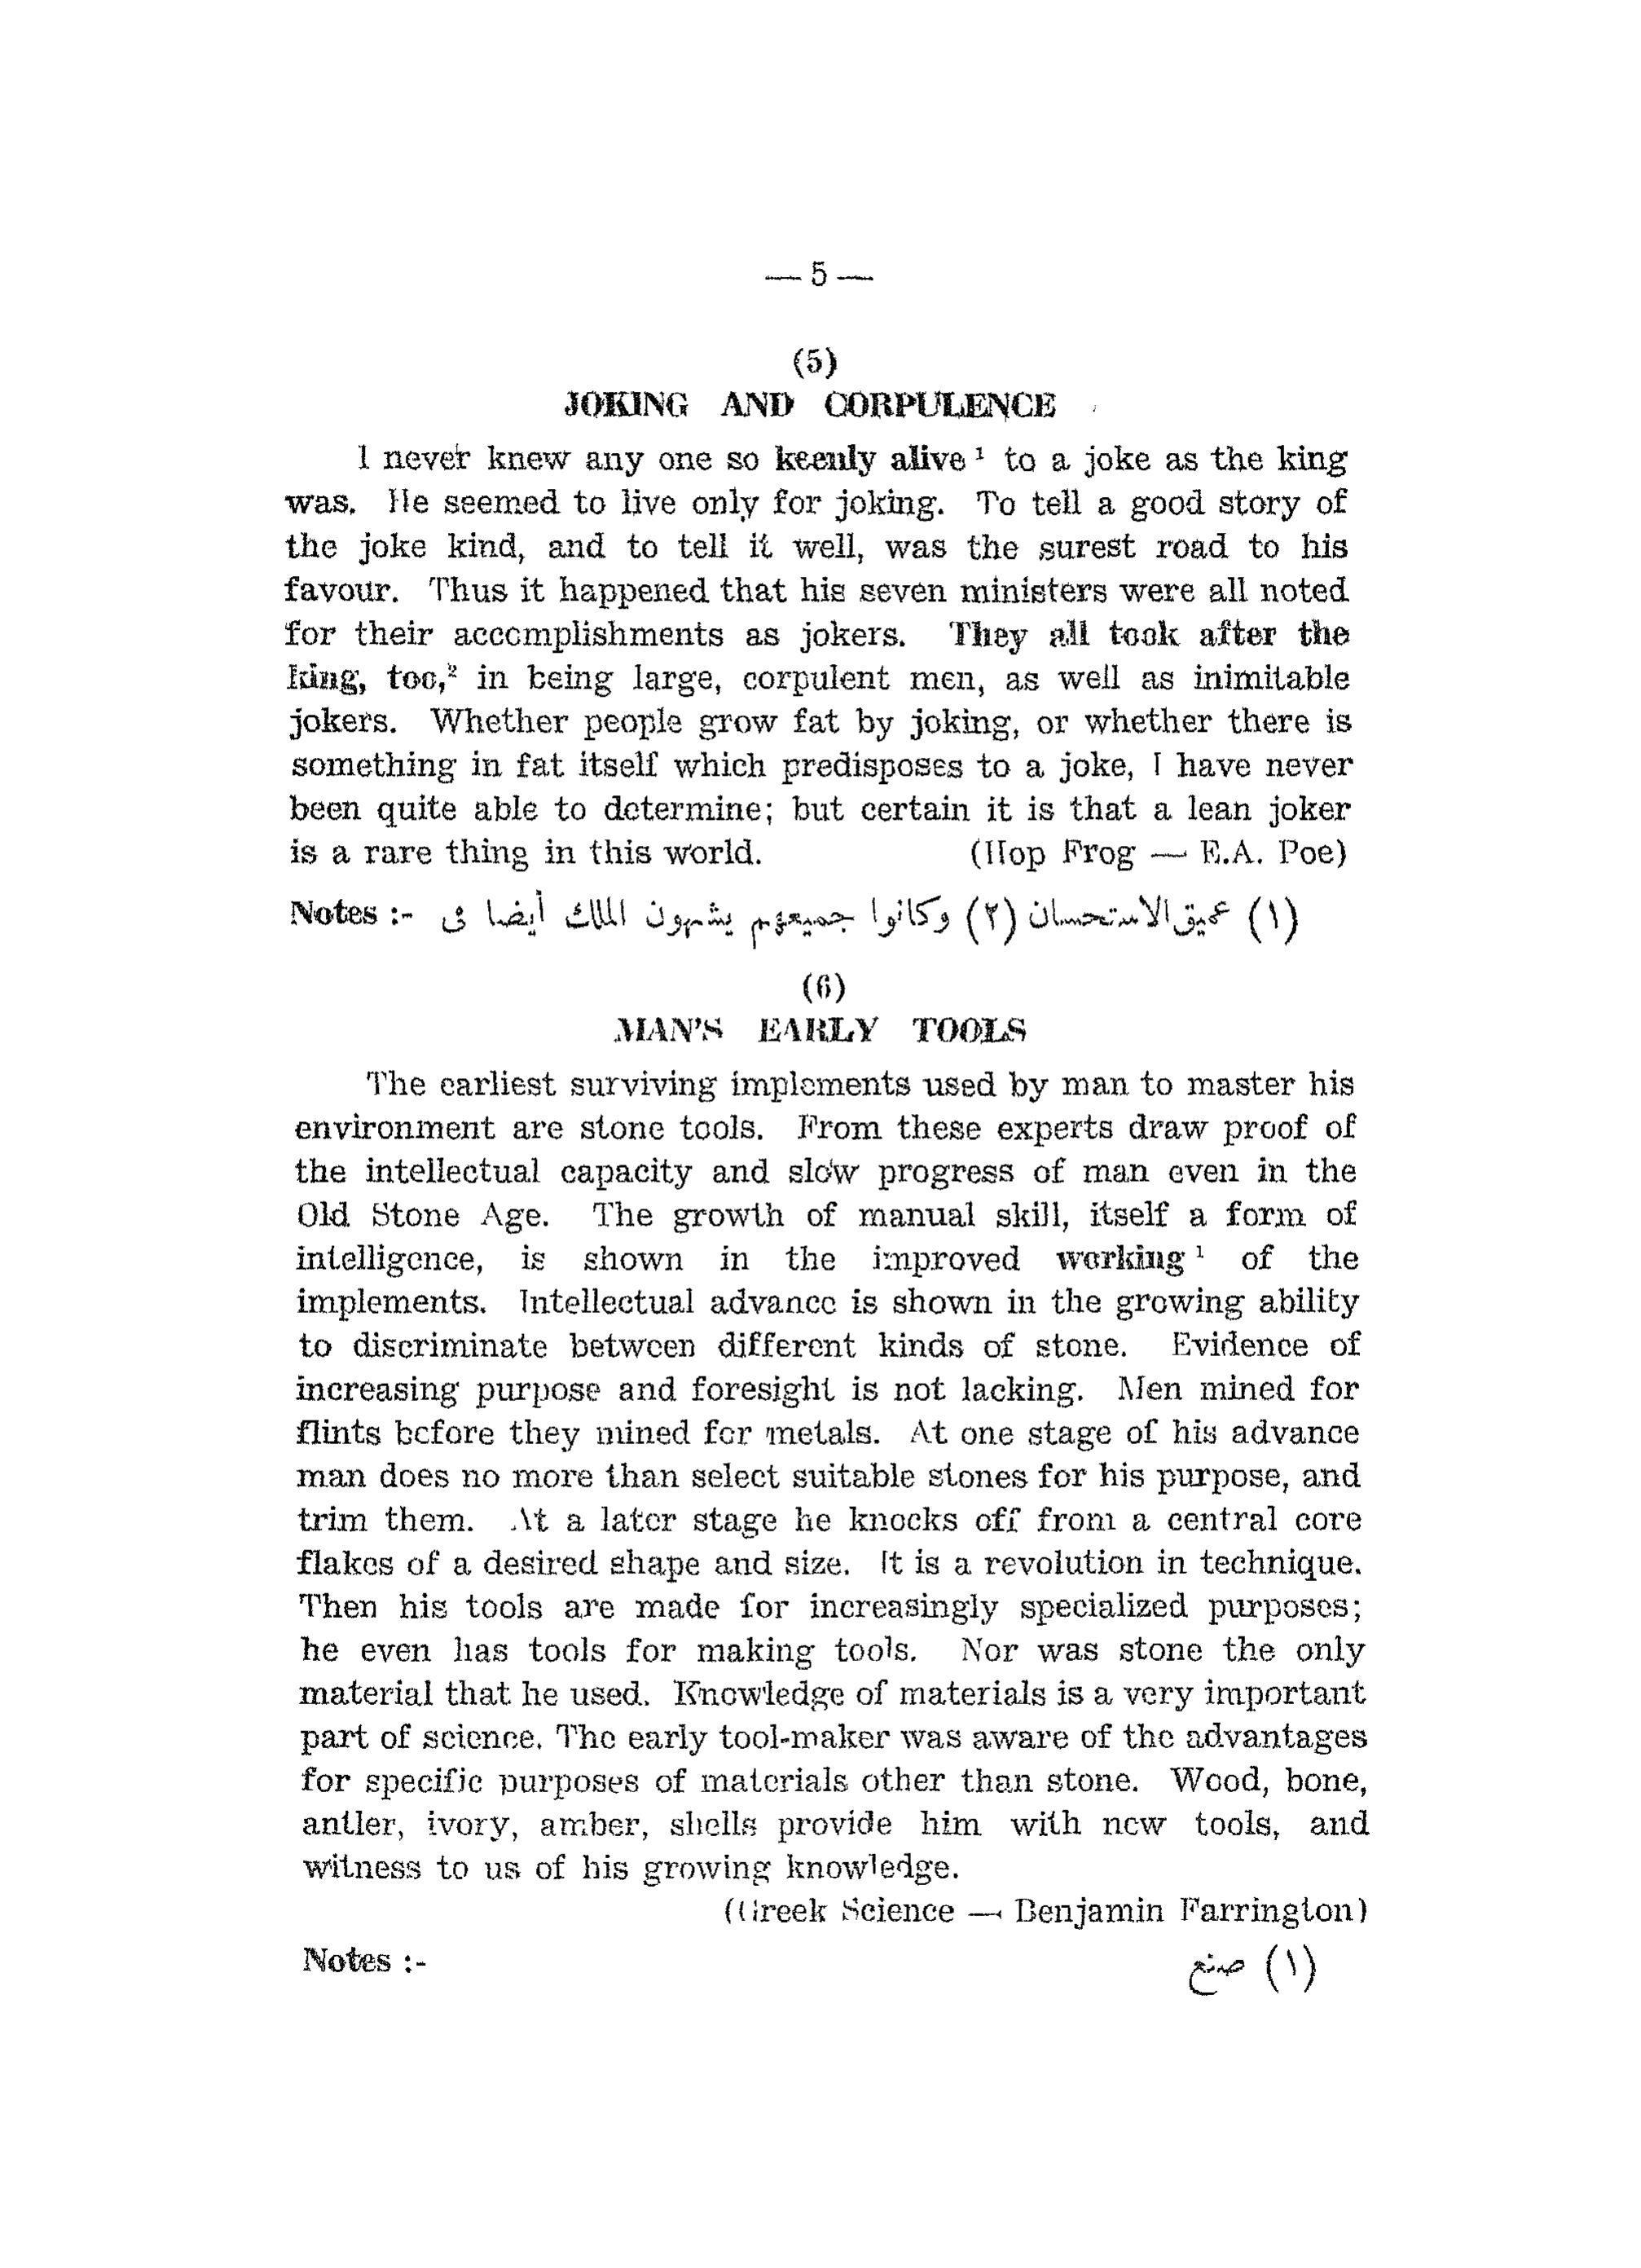 — 5 —
(5)
JOKING AND CORPULENCE
I never knew any one so keenly alive ¹ to a joke as the king
was. He seemed to live only for joking. To tell a good story of
the joke kind, and to tell it well, was the surest road to his
favour. Thus it happened that his seven ministers were all noted
for their accomplishments as jokers. They all took after the
king, too,² in being large, corpulent men, as well as inimitable
jokers. Whether people grow fat by joking, or whether there is
something in fat itself which predisposes to a joke, I have never
been quite able to determine; but certain it is that a lean joker
is a rare thing in this world. (Hop Frog — E.A. Poe)
Notes :- (١) عميق الاستحسان (٢) وكانوا جميعهم يشبهون الملك أيضا فى
(6)
MAN'S EARLY TOOLS
The earliest surviving implements used by man to master his
environment are stone tools. From these experts draw proof of
the intellectual capacity and slow progress of man even in the
Old Stone Age. The growth of manual skill, itself a form of
intelligence, is shown in the improved working ¹ of the
implements. Intellectual advance is shown in the growing ability
to discriminate between different kinds of stone. Evidence of
increasing purpose and foresight is not lacking. Men mined for
flints before they mined for metals. At one stage of his advance
man does no more than select suitable stones for his purpose, and
trim them. At a later stage he knocks off from a central core
flakes of a desired shape and size. It is a revolution in technique.
Then his tools are made for increasingly specialized purposes;
he even has tools for making tools. Nor was stone the only
material that he used. Knowledge of materials is a very important
part of science. The early tool-maker was aware of the advantages
for specific purposes of materials other than stone. Wood, bone,
antler, ivory, amber, shells provide him with new tools, and
witness to us of his growing knowledge.
(Greek Science — Benjamin Farrington)
Notes :- (١) صنع